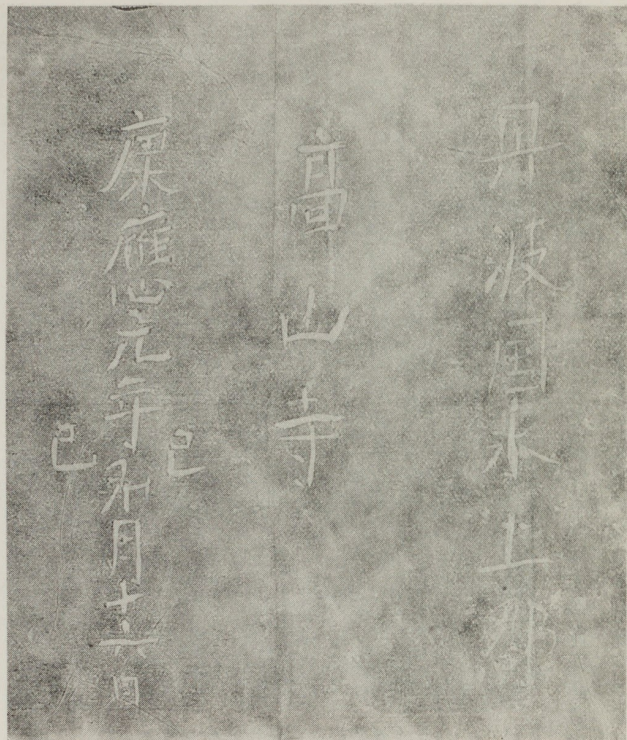 丹波国水上郡
髙山寺
康應元年己巳卯月十六日